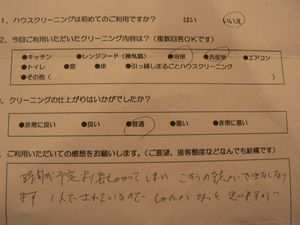 1、ハウスクリーニングは初めてのご利用ですか？ はい いいえ
2、今回ご利用いただいたクリーニング内容は？（複数回答OKです）
●キッチン ●レンジフード（換気扇） ●浴室 ●洗面室 ●エアコン
●トイレ ●窓 ●床 ●引っ越しまるごとハウスクリーニング
●その他（
クリーニングの仕上がりはいかがでしたか？
●非常に良い ●良い ●普通 ●悪い ●非常に悪い
ご利用いただいての感想をお願いします。（ご要望、接客態度などなんでも結構です）
時間が予定より長くかかってしまい こちらの
ます 1人でされているので しかたないかなっと思いますが